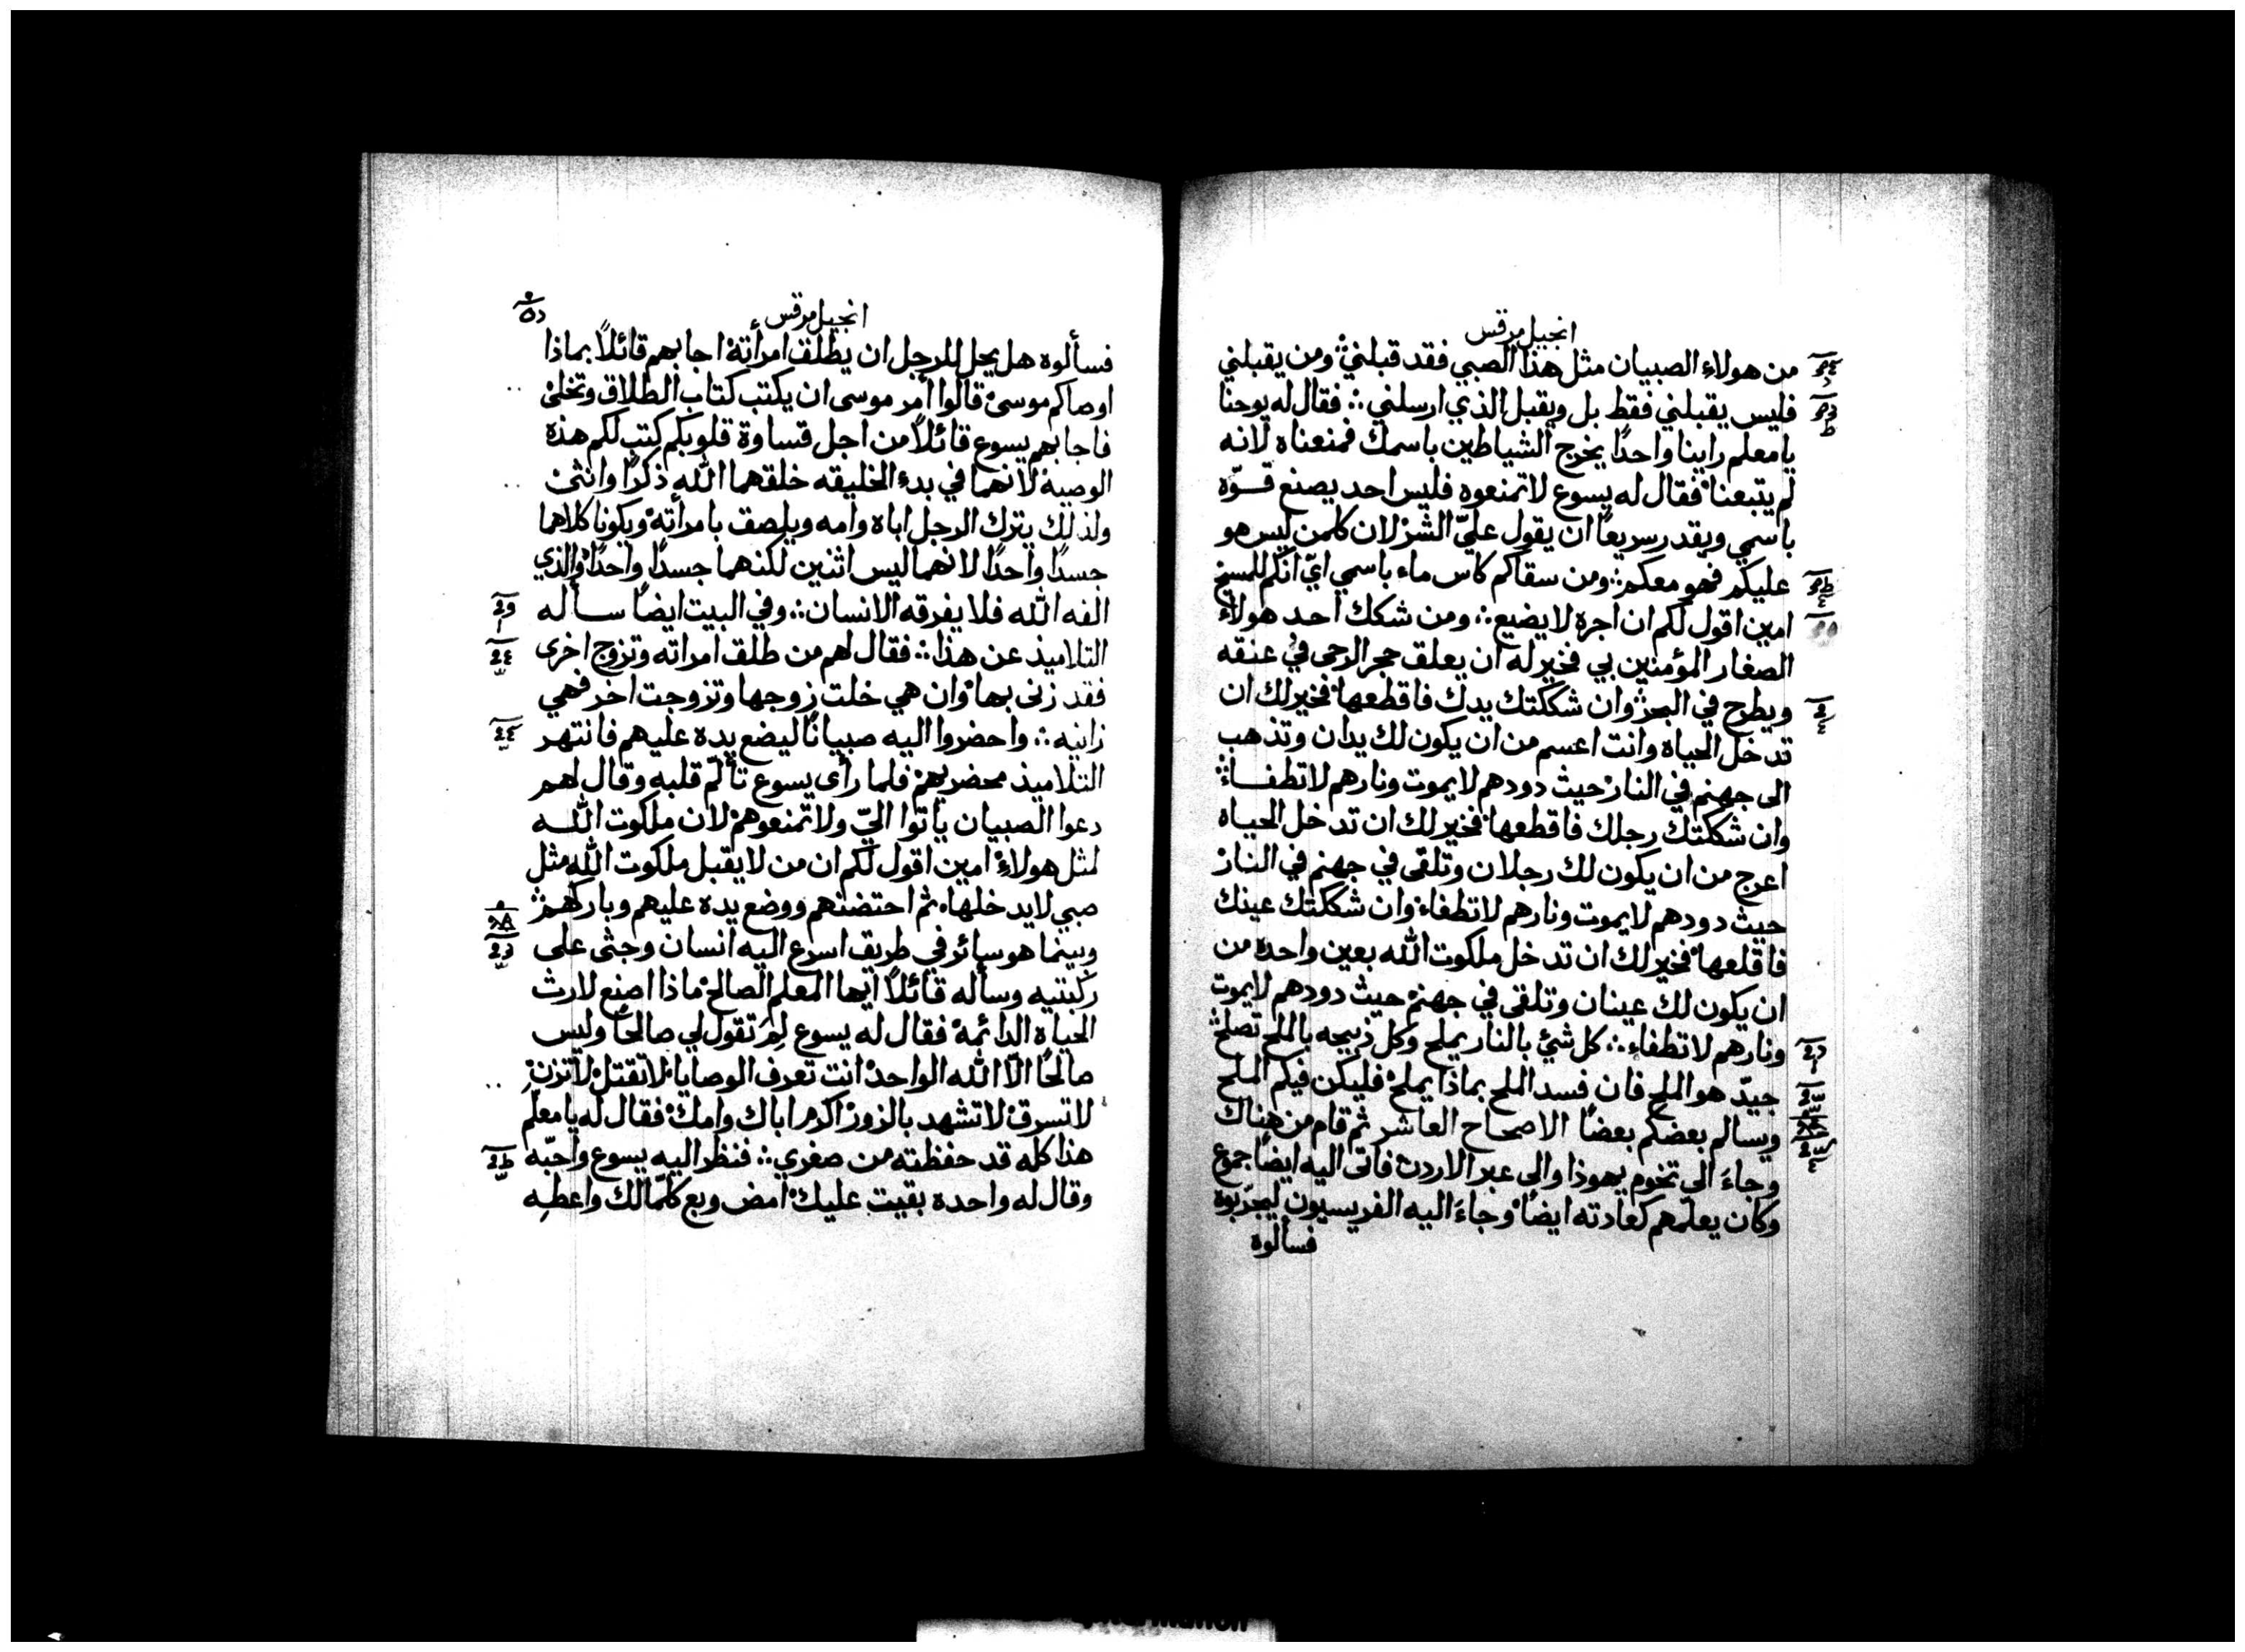 انجيل مرقس
من هولاء الصبيان مثل هذا الصبي فقد قبلني ومن يقبلني
فليس يقبلني فقط بل ويقبل الذي ارسلني ∴ فقال له يوحنا
يا معلم راينا واحدًا يخرج الشياطين باسمك فمنعناه لانه
لم يتبعنا فقال له يسوع لا تمنعوه فليس احد يصنع قوّه
باسمي ويقدر سريعًا ان يقول عليّ الشر لان كلمن ليس هو
عليكم فهو معكم ∴ ومن سقاكم كاس ماء باسمي ايّ انكم للمسيح
امين اقول لكم ان اجره لا يضيع ∴ ومن شكك احد هولاء
الصغار المؤمنين بي فخير له ان يعلق حجر الرحى في عنقه
ويطرح في البحر وان شككتك يدك فاقطعها فخير لك ان
تدخل الحياه وانت اعسم من ان يكون لك يدان وتذهب
الى جهنم في النار حيث دودهم لا يموت ونارهم لا تطفاء
وان شككتك رجلك فاقطعها فخير لك ان تدخل الحياه
اعرج من ان يكون لك رجلان وتلقى في جهنم في النار
حيث دودهم لا يموت ونارهم لا تطفاء وان شككتك عينك
فاقلعها فخير لك ان تدخل ملكوت الله بعين واحده من
ان يكون لك عينان وتلقى في جهنم حيث دودهم لا يموت
ونارهم لا تطفاء ∴ كل شئ بالنار يملح وكل ذبيحه بالملح تصلح
جيدّ هو الملح فان فسد الملح بماذا يملح فليكن فيكم الملح
ويسالم بعضكم بعضًا الاصحاح العاشر ثم قام من هناك
وجاءَ الى تخوم يهوذا والى عبر الاردن فاتى اليه ايضًا جموع
وكان يعلّمهم كعادته ايضًا وجاءَ اليه الفريسيون ليجرّبوه
فسألوه
انجيل مرقس
فسألوه هل يحل للرجل ان يطلق امرأته اجابهم قائلاً بماذا
اوصاكم موسى قالوا أمر موسى ان يكتب كتاب الطلاق وتخلى
فاجابهم يسوع قائلاً من اجل قساوة قلوبكم كتب لكم هذه
الوصية لانهما في بدء الخليقه خلقهما الله ذكرًا وانثى
ولذلك يترك الرجل اباه وامه ويلصق بامرأته ويكونا كلاهما
جسدًا واحدًا لانهما ليس اثنين لكنهما جسدًا واحدًا والذي
الفه الله فلا يفرقه الانسان ∴ وفي البيت ايضًا سأله
التلاميذ عن هذا ∴ فقال لهم من طلق امراته وتزوج اخرى
فقد زنى بها وان هي خلت زوجها وتزوجت اخر فهي
زانيه ∴ واحضروا اليه صبيانًا ليضع يده عليهم فانتهر
التلاميذ محضريهم فلما رأى يسوع تألّم قلبه وقال لهم
دعوا الصبيان ياتوا اليّ ولا تمنعوهم لان ملكوت الله
لمثل هولاء امين اقول لكم ان من لا يقبل ملكوت الله مثل
صبي لا يدخلها ثم احتضنهم ووضع يده عليهم وباركهم
وبينما هو سائر في طريق اسرع اليه انسان وجثى على
ركبتيه وسأله قائلاً ايها المعلم الصالح ماذا اصنع لارث
الحياه الدائمة فقال له يسوع لِمَ تقول لي صالحًا وليس
صالحًا الّا الله الواحد انت تعرف الوصايا لا تقتل لا تزنِ
لا تسرق لا تشهد بالزور اكرم اباك وامك فقال له يا معلم
هذا كله قد حفظته من صغري ∴ فنظر اليه يسوع واحّبه
وقال له واحده بقيت عليك امض وبع كلّما لك واعطِه